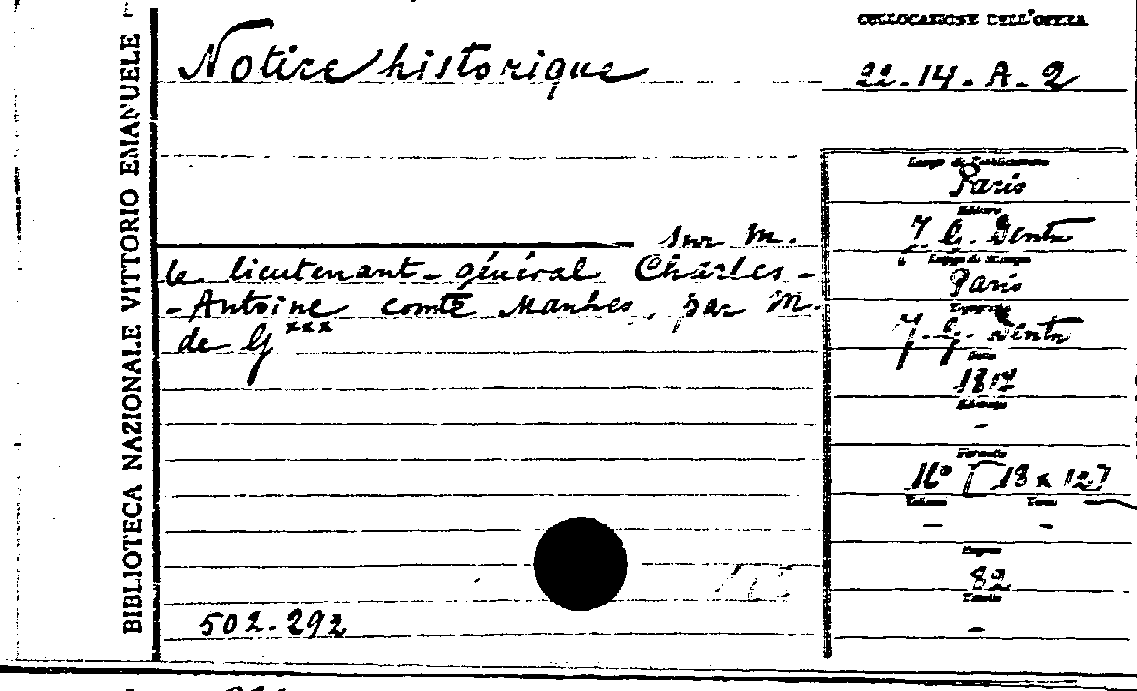 BIBLIOTECA NAZIONALE VITTORIO EMANUELE
Notice historique
sur M.
le lieutenant-général Charles-
-Antoine comte Manhes, par M.
de G***
502.292
COLLOCAZIONE DELL'OPERA
22-14-A-2
Luogo di Pubblicazione
Paris
Editore
J. G. Dentu
Luogo di Stampa
Paris
Tipografo
J. G. Dentu
Data
1817
Edizione
-
Formato
16° [18 x 12]
Volume Tomo
- -
Pagine
82
Tavole
-